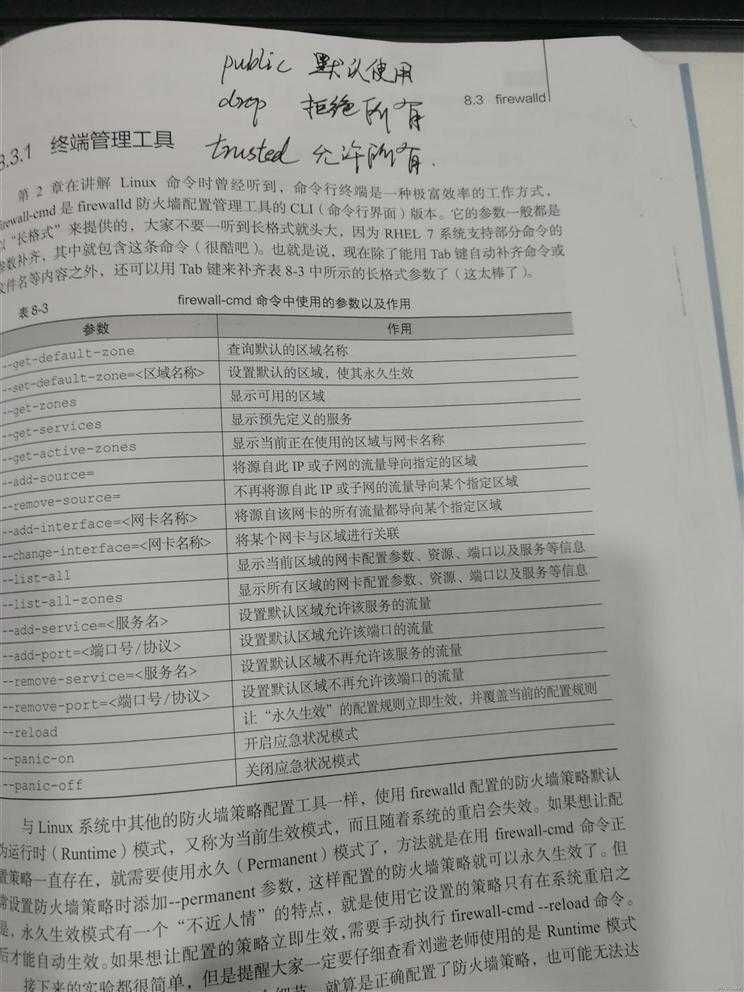 public 默认使用
drop 拒绝所有
8.3 firewalld
trusted 允许所有.
8.3.1 终端管理工具
第 2 章在讲解 Linux 命令时曾经听到，命令行终端是一种极富效率的工作方式，
firewall-cmd 是 firewalld 防火墙配置管理工具的 CLI（命令行界面）版本。它的参数一般都是
以“长格式”来提供的，大家不要一听到长格式就头大，因为 RHEL 7 系统支持部分命令的
参数补齐，其中就包含这条命令（很酷吧）。也就是说，现在除了能用 Tab 键自动补齐命令或
文件名等内容之外，还可以用 Tab 键来补齐表 8-3 中所示的长格式参数了（这太棒了）。
表 8-3 firewall-cmd 命令中使用的参数以及作用
参数 作用
--get-default-zone 查询默认的区域名称
--set-default-zone=<区域名称> 设置默认的区域，使其永久生效
--get-zones 显示可用的区域
--get-services 显示预先定义的服务
--get-active-zones 显示当前正在使用的区域与网卡名称
--add-source= 将源自此 IP 或子网的流量导向指定的区域
--remove-source= 不再将源自此 IP 或子网的流量导向某个指定区域
--add-interface=<网卡名称> 将源自该网卡的所有流量都导向某个指定区域
--change-interface=<网卡名称> 将某个网卡与区域进行关联
--list-all 显示当前区域的网卡配置参数、资源、端口以及服务等信息
--list-all-zones 显示所有区域的网卡配置参数、资源、端口以及服务等信息
--add-service=<服务名> 设置默认区域允许该服务的流量
--add-port=<端口号/协议> 设置默认区域允许该端口的流量
--remove-service=<服务名> 设置默认区域不再允许该服务的流量
--remove-port=<端口号/协议> 设置默认区域不再允许该端口的流量
--reload 让“永久生效”的配置规则立即生效，并覆盖当前的配置规则
--panic-on 开启应急状况模式
--panic-off 关闭应急状况模式
与 Linux 系统中其他的防火墙策略配置工具一样，使用 firewalld 配置的防火墙策略默认
为运行时（Runtime）模式，又称为当前生效模式，而且随着系统的重启会失效。如果想让配
置策略一直存在，就需要使用永久（Permanent）模式了，方法就是在用 firewall-cmd 命令正
常设置防火墙策略时添加--permanent 参数，这样配置的防火墙策略就可以永久生效了。但
是，永久生效模式有一个“不近人情”的特点，就是使用它设置的策略只有在系统重启之
后才能自动生效。如果想让配置的策略立即生效，需要手动执行 firewall-cmd --reload 命令。
接下来的实验都很简单，但是提醒大家一定要仔细查看刘遄老师使用的是 Runtime 模式
就算是正确配置了防火墙策略，也可能无法达